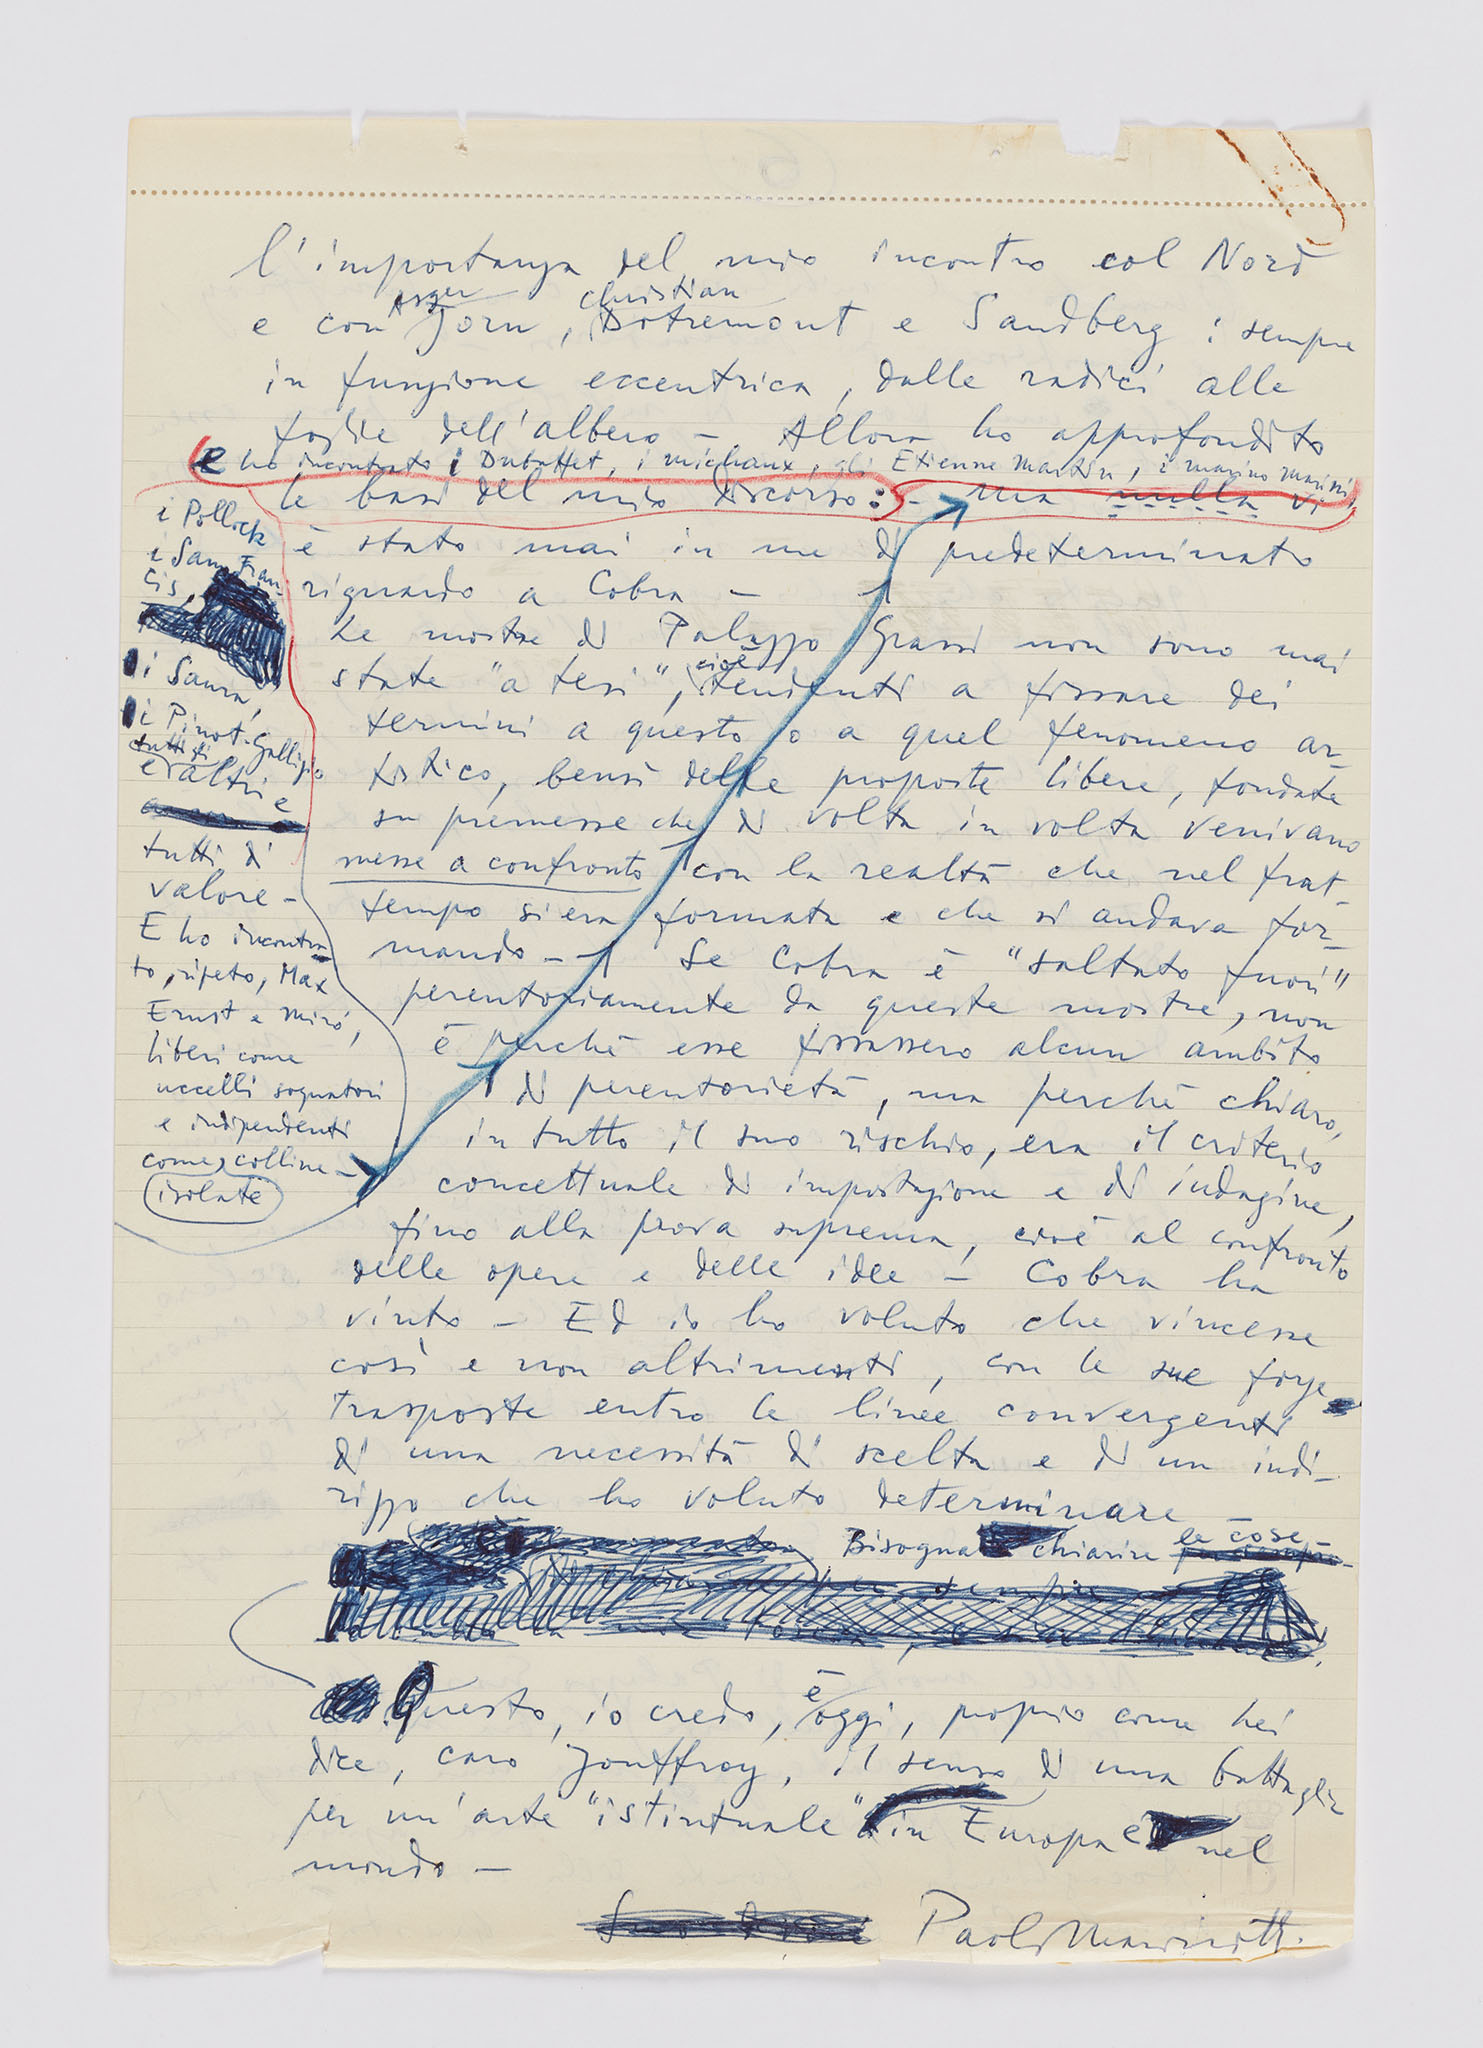 l'importanza del mio incontro col Nord
Asger Christian
e con Jorn, Dotremont e Sandberg : sempre
in funzione eccentrica, dalle radici alle
foglie dell'albero — Allora ho approfondito
e ho incontrato i Dubuffet, i Michaux, gli Etienne Martin, i Marino Marini,
le basi del mio discorso : — Ma nulla vi
è stato mai in me di predeterminato
riguardo a Cobra —
Le mostre di Palazzo Grassi non sono mai
cioè
state "a tesi", tendenti a fissare dei
termini a questo o a quel fenomeno ar-
tistico, bensì delle proposte libere, fondate
su premesse che di volta in volta venivano
messe a confronto con la realtà che nel frat-
tempo si era formata e che si andava for-
mando — Se Cobra è "saltato fuori"
perentoriamente da queste mostre, non
è perché esse fissassero alcun ambito
di perentorietà, ma perché chiaro,
in tutto il suo rischio, era il criterio
concettuale di impostazione e di indagine,
fino alla prova suprema, cioè al confronto
delle opere e delle idee — Cobra ha
vinto — Ed io ho voluto che vincesse
così e non altrimenti, con le sue forze
trasposte entro le linee convergenti
di una necessità di scelta e di un indi-
rizzo che ho voluto determinare
Bisogna chiarire le cose
Questo, io credo, è oggi, proprio come lei
dice, caro Jouffroy, il senso di una battaglia
per un'arte "istintuale" in Europa e nel
mondo —
Paolo Marinotti.
i Pollock
i Sam Fran-
cis,
i Saura,
i Pinot-Gallizio
tutti gli
e altri e
tutti di
valore —
E ho incontra-
to, ripeto, Max
Ernst e Miró,
liberi come
uccelli sognatori
e indipendenti
come colline —
isolate